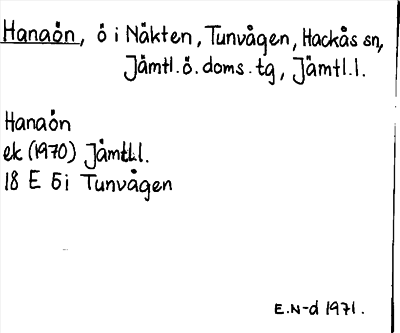 Hanaön, ö i Näkten, Tunvågen, Hackås sn,
Jämtl. ö. doms. tg, Jämtl. l.
Hanaön
ek (1970) Jämtl. l.
18 E 5i Tunvågen
E.N-d 1971.